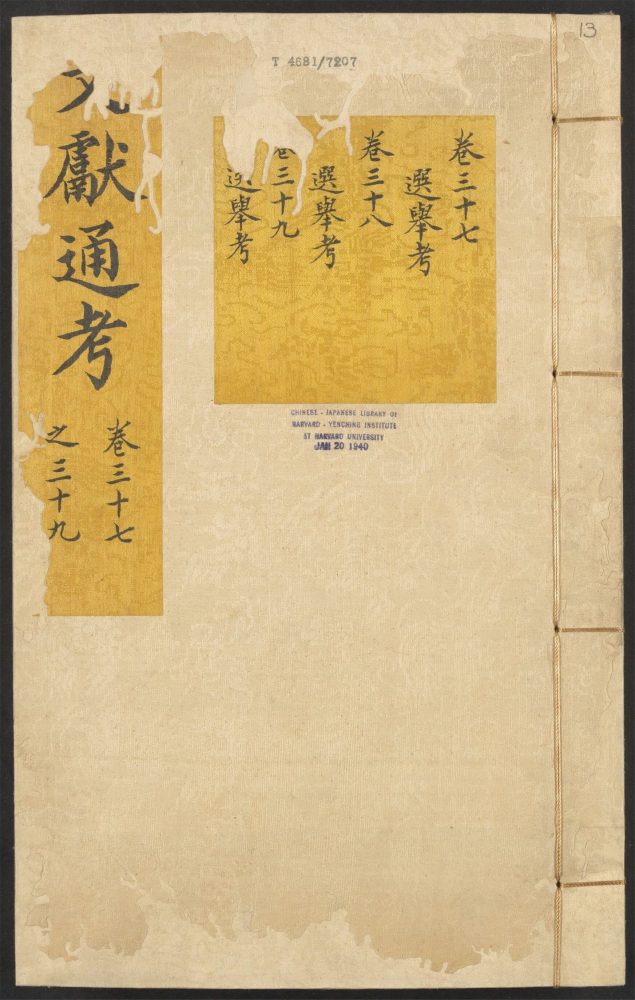 13
T 4681/7207
卷三十七
選舉考
卷三十八
選舉考
三十九
選舉考
CHINESE - JAPANESE LIBRARY OF
HARVARD - YENCHING INSTITUTE
AT HARVARD UNIVERSITY
JAN 20 1940
獻通考
卷三十七
之三十九